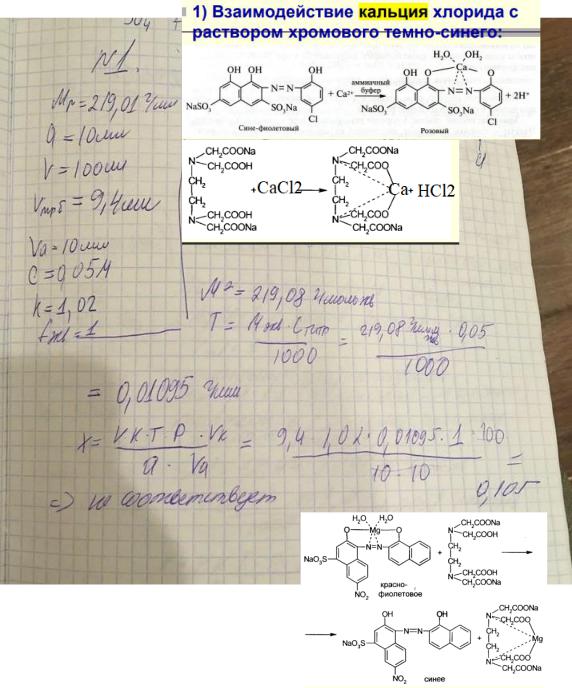 1) Взаимодействие кальция хлорида с
раствором хромового темно-синего:
OH OH OH
N=N
NaSO₃ SO₃Na Cl
+ Ca²⁺
аммиачный
буфер
H₂O OH₂
Ca
OH O O
N=N
NaSO₃ SO₃Na Cl
+ 2H⁺
Сине-фиолетовый
Розовый
CH₂COONa
N
CH₂COOH
CH₂
CH₂
CH₂COOH
N
CH₂COONa
+CaCl2
CH₂COONa
N
CH₂COO
CH₂
CH₂
CH₂COO
N
CH₂COONa
Ca+ HCl2
N1.
Mr=219,01 г/мл
a=10мл
V=100мл
Vтрб=9,4мл
Va=10мл
C=0,05М
K=1,02
fэкв=1
Mэ=219,08 г/мольэкв
T = Mэкв·Cтитр / 1000 = 219,08 · 0,05 / 1000
= 0,01095 г/мл
X= VK·T·P·Vк / a·Va = 9,4·1,02·0,01095·1·100 / 10·10 =
0,105
=> не соответствует
H₂O H₂O
O Mg O
N=N
NaSO₃
NO₂
красно-
фиолетовое
+
CH₂COONa
N
CH₂COOH
CH₂
CH₂
CH₂COOH
N
CH₂COONa
OH OH
N=N
NaSO₃
NO₂
синее
+
CH₂COONa
N
CH₂COO
CH₂
CH₂
CH₂COO
N
CH₂COONa
Mg